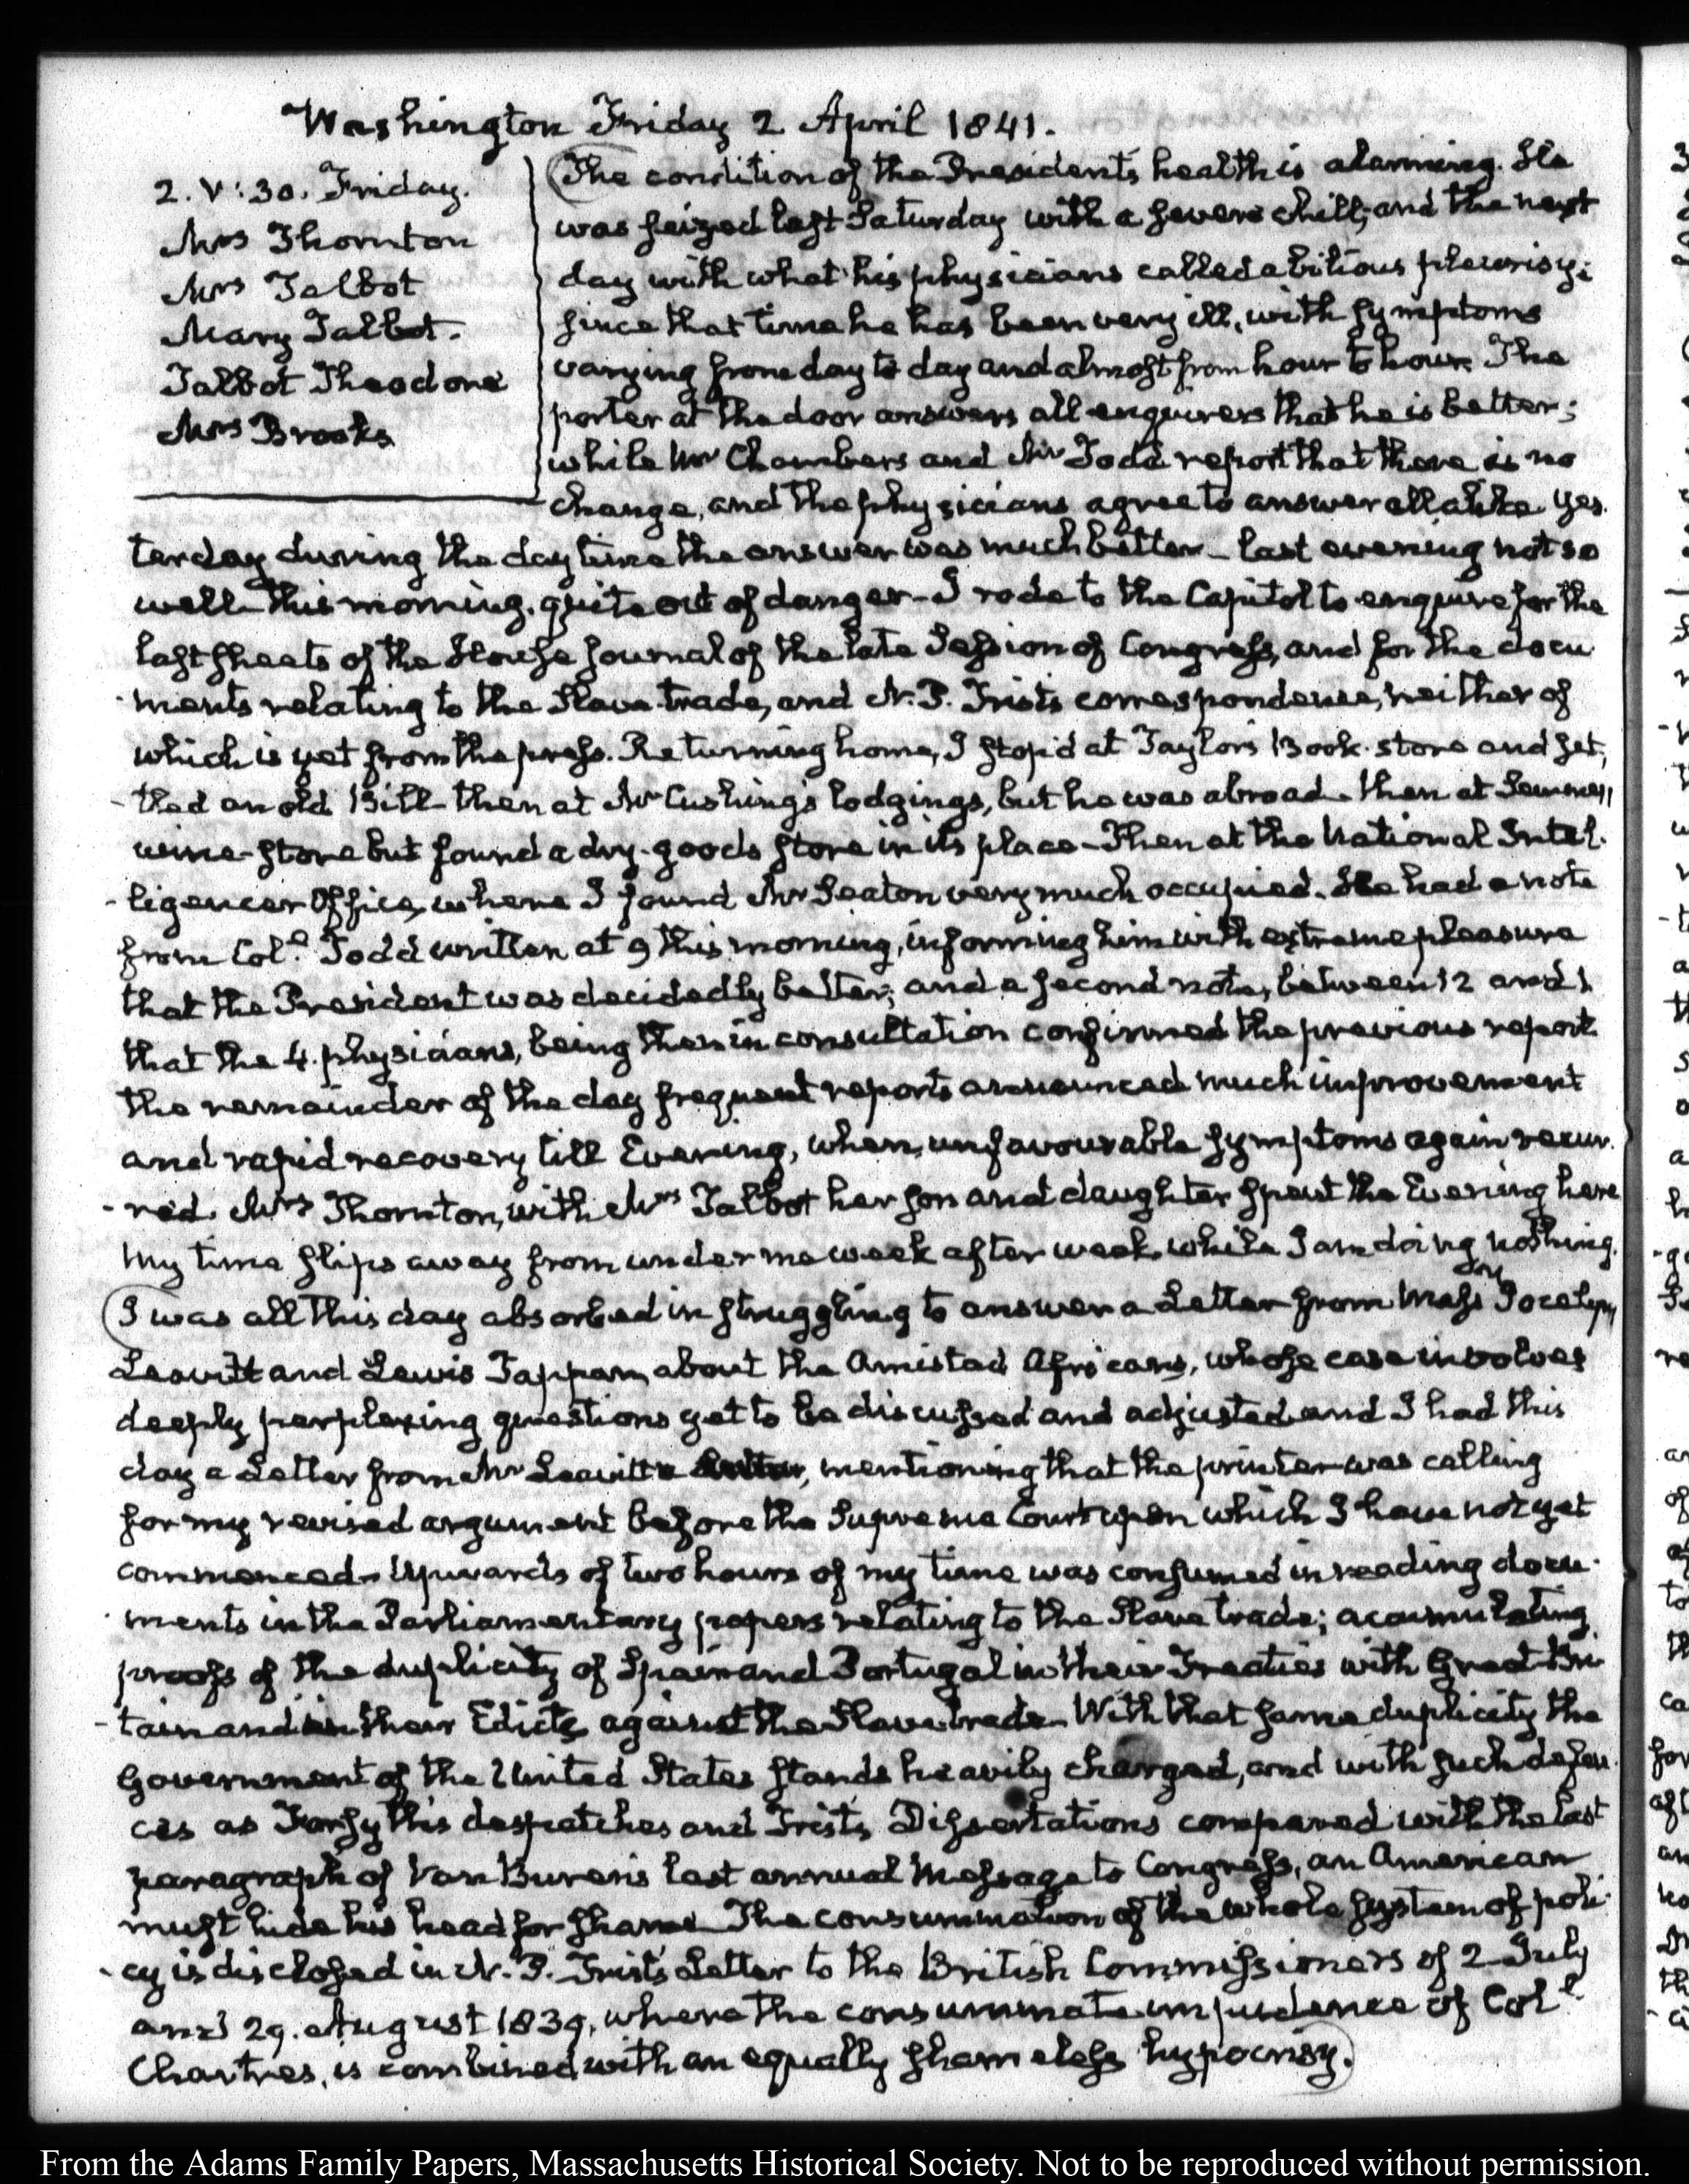 Washington Friday 2 April 1841.
2. V:30. Friday.
Mrs Thornton
Mrs Talbot
Mary Talbot.
Talbot Theodore
Mrs Brooks
The condition of the President's health is alarming. He
was seized last Saturday with a severe chill, and the next
day with what his physicians called a bilious pleurisy;
since that time he has been very ill, with symptoms
varying from day to day and almost from hour to hour. The
porter at the door answers all enquirers that he is better;
while Mr Chambers and Mr Todd report that there is no
change, and the physicians agree to answer all alike. Yes-
terday during the day time the answer was much better - last evening not so
well - this morning, quite out of danger - I rode to the Capitol to enquire for the
last sheets of the House journal of the late Session of Congress, and for the docu-
-ments relating to the Slave-trade, and N. P. Trist's correspondence, neither of
which is yet from the press. Returning home, I stop'd at Taylor's Book-store and set-
-tled an old Bill - then at Mr Cushing's lodgings, but he was abroad - then at
wine-store but found a dry-goods store in its place - Then at the National Intel-
-ligencer Office, where I found Mr Seaton very much occupied. He had a note
from Coll. Todd written at 9 this morning, informing him with extreme pleasure
that the President was decidedly better; and a second note, between 12 and 1
that the 4. physicians, being then in consultation confirmed the previous report
the remainder of the day frequent reports announced much improvement
and rapid recovery till Evening, when, unfavourable symptoms again recur-
-red. Mrs Thornton, with Mrs Talbot her son and daughter spent the Evening here
My time slips away from under me week after week, while I am doing nothing.
I was all this day absorbed in struggling to answer a Letter from Messrs Jocelyn,
Leavitt and Lewis Tappan, about the Amistad Africans, whose case involves
deeply perplexing questions yet to be discussed and adjusted and I had this
day a Letter from Mr Leavitt, mentioning that the printer was calling
for my revised argument before the Supreme Court upon which I have not yet
commenced - Upwards of two hours of my time was consumed in reading docu-
-ments in the Parliamentary papers relating to the Slave trade; accumulating
proofs of the duplicity of Spain and Portugal in their Treaties with Great-Bri-
-tain and in their Edicts against the Slave trade - With that same duplicity the
Government of the United States stands heavily charged, and with such defen-
ces as Forsyth's despatches and Trist's Dissertations compared with the last
paragraph of Van Buren's last annual Message to Congress, an American
must hide his head for shame - The consummation of the whole system of poli-
-cy is disclosed in N. P. Trist's Letter to the British Commissioners of 2 July
and 29. August 1839, where the consummate impudence of Coll.
Chartres, is combined with an equally shameless hypocrisy.
From the Adams Family Papers, Massachusetts Historical Society. Not to be reproduced without permission.